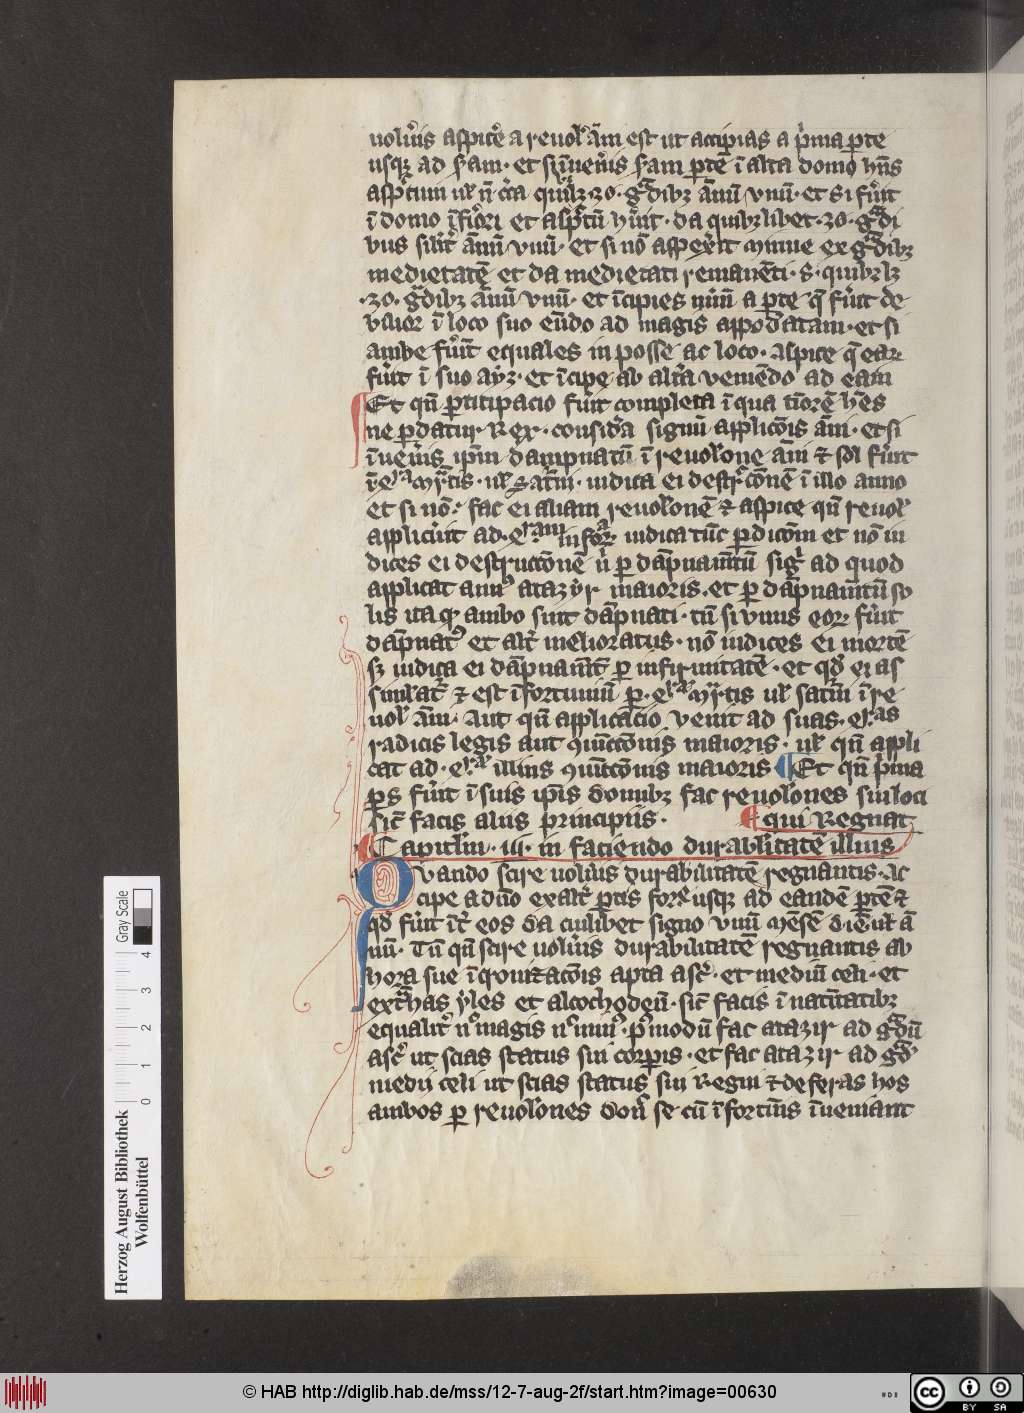 uolu̓is aspice̓ a reuol̓ ām est ut accipias a p̓ma ꝑte
usqꝫ ad s̄am · et si īueńis s̄am ꝑtē ī alta domo hn̄s
ī domo īfio̓ri et asp̄tū hn̄t · da quibꝫlibet · 30 · g̈di
vus sil̓it̓ ām̄ vnū · et si nō aspex̓it minue ex g̈dibꝫ
medietatē et da medietati remanēti · s̄ · quibꝫlꝫ
· 30 · g̈dibꝫ ām̄ vnū · et īcipies a ꝑte q̄ fu̓it de
bilior ī loco suo eūdo ad magis appodiatam · et si
ambe fu̓it equales in posse ac loco · Aspice q̄ eaꝝ
fu̓it ī suo ayz · et īcipe ab alt̓a veniēdo ad eam
Et qn̄ ꝑticipacio fu̓it completa ī qua tiorē hēs
ne ꝑdatur Rex · considera signū applicōis ām · et si
īueńis ip̄m dampnatū ī reuol̓one ām ⁊ sol fu̓it
iudica ei destructōnē ī illo anno
et si nō · fac ei aliam reuol̓onē ⁊ aspice qn̄ reuol̓
applicu̓it ad iudica tūc ꝑdicōm et nō in
dices ei destructōnē n̓ ꝑ dāpnam̄tū sig̓ ad quod
applicat annus atazyr maioris · et ꝑ dāpnam̄tū so
lis ita qꝫ ambo sint dāpnati · tū si vnus eoꝝ fu̓it
dāpnatꝰ et alt̓ melioratus · nō iudices ei mortē
sꝫ iudica ei dāpnam̄t̄ ꝑ infirmitatē · et qd̓ ei as
similat̓ ⁊ est īfortuniū ꝑ mr̄tis ul̓ sat̓ni ī re
uol̓ ām · Aut qn̄ applicacio venit ad suas
radicis legis aut 9iūctōnis maioris · ul̓ qn̄ appli
cat ad illius 9iūctōnis maioris Et qn̄ p̓ma
ꝑs fu̓it ī suis ip̄is domibꝫ fac reuol̓ones sui loci
sic̄ facis aliis principiis · qui Regnat
Capitl̓m · iii · in faciendo durabl̓itatē illius
Qvando scire uolu̓is durabilitatē regnantis · Ac
cipe a dn̄o exalt̓ ꝑtis for̄ usqꝫ ad eandē ꝑtē ⁊
qd̓ fu̓it īt̓ eos da cuilibet signo vnū mēsē diē ul̓ ā
nū · Tū qn̄ scire uolu̓is durabilitatē regnantis ab
hora sue ītronizacōis apta asc̄ · et mediū celi · et
ext̓has yles et alcochodeū · sic̄ facis ī natiuitatibꝫ
equalit̓ nō magis nō minꝰ · p̓ modū fac atazir ad g̈dū
asc̄ ut scias status sui corꝑis · et fac atazir ad g̈dū
medii celi ut scias status sui Regni ⁊ deferas hos
ambos ꝑ reuol̓ones donec̄ se cū īfortunis īueniant
Herzog August Bibliothek
Wolfenbüttel
0 1 2 3 4
Gray Scale
© HAB http://diglib.hab.de/mss/12-7-aug-2f/start.htm?image=00630
cc BY SA